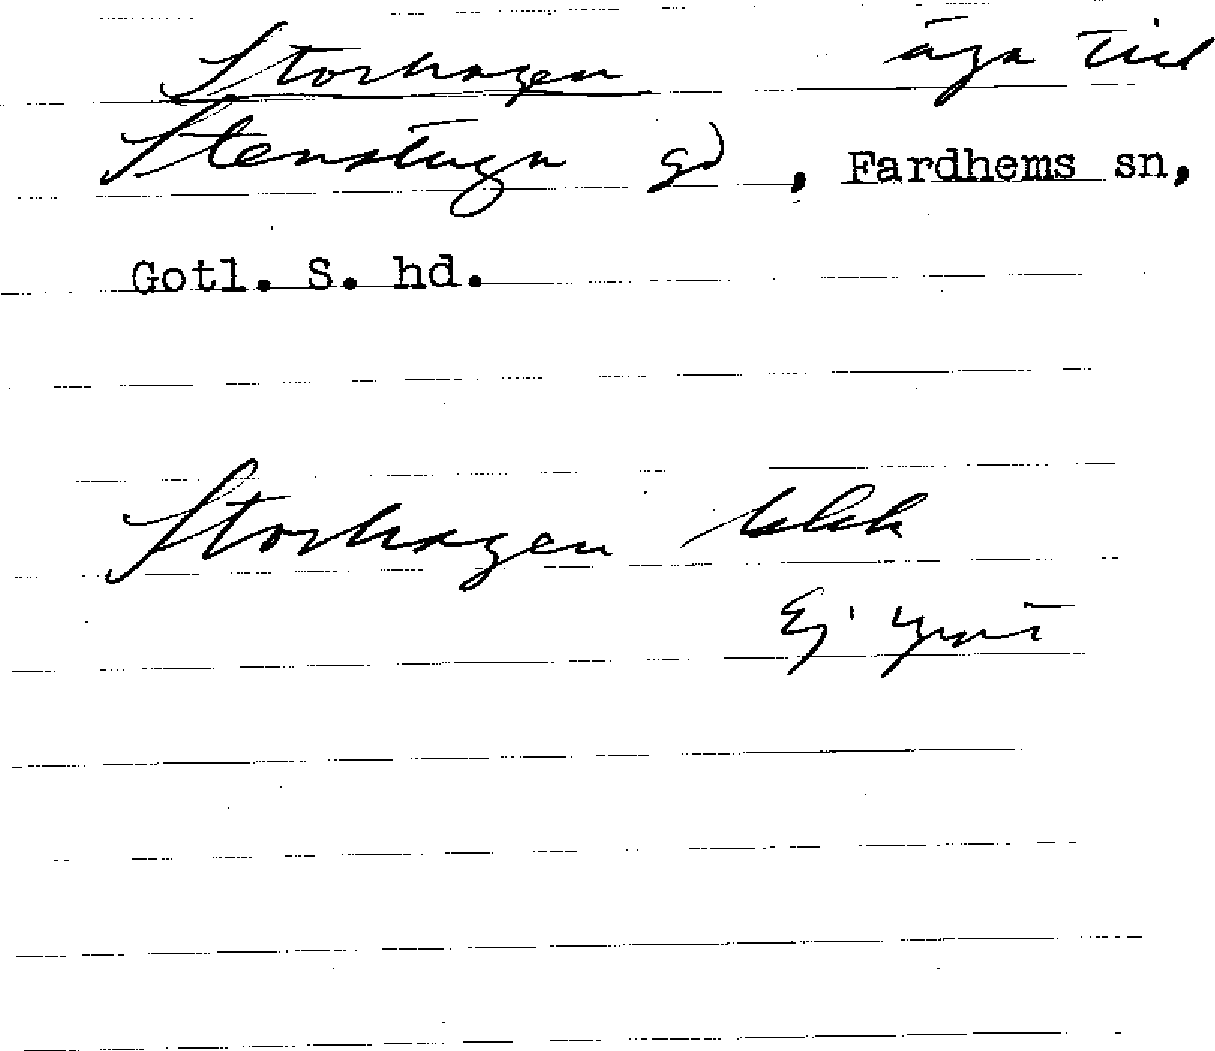 Storhagen äga till
Stenstugu gd, Fardhems sn,
Gotl. S. hd.
Storhagen blek
Ej